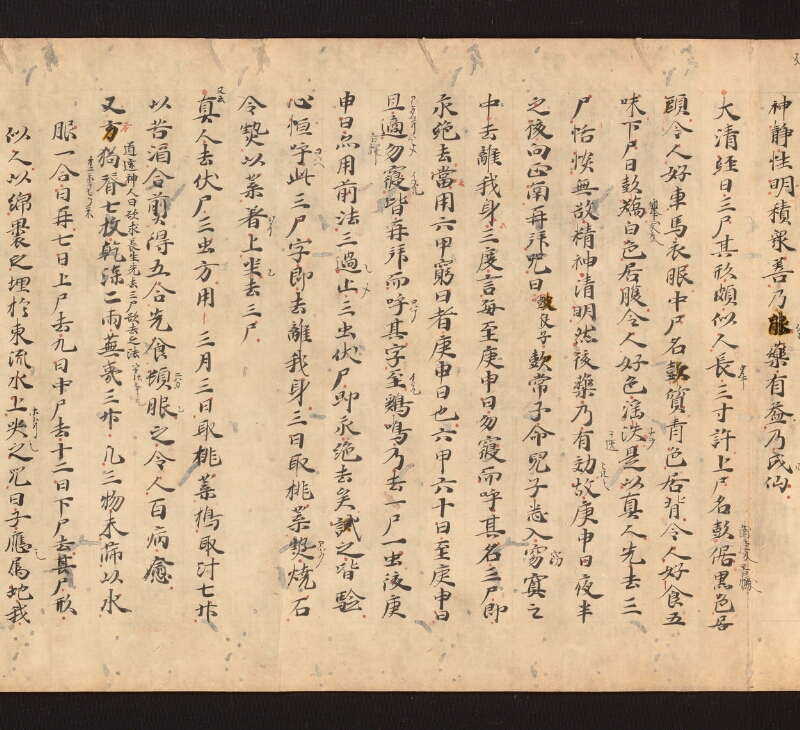 神静性明積衆善乃服藥有益乃成仙
大清経曰三尸其形頗似人長三寸許上尸名彭倨黒色居
頭令人好車馬衣服中尸名彭質青色居背令人好食五
味下尸曰彭矯白色居腹令人好色淫泆是以真人先去三
尸恬惔無欲精神清明然後藥乃有効故庚申日夜半
之後向正南再拝咒曰彭侯子彭常子命児子悉入窈冥之
中去離我身三度言毎至庚申日勿寝而呼其名三尸即
永絶去當用六甲窮日者庚申日也六甲六十日至庚申日
且適勿寝皆再拝而呼其字至鶏鳴乃去一尸一虫後庚
申日亦用前法三過止三虫伏尸即永絶去矣試之皆驗
心恒呼此三尸字即去離我身三日取桃葉熱燒石
令熱以葉著上坐去三尸
又云
真人去伏尸三虫方用三月三日取桃葉搗取汁七升
以苦酒合煎得五合先食頓服之令人百病癒
道遠神人曰欲求長生先去三尸欲去之法
又方狗脊七枚乾漆二両蕪荑三升凡三物末篩以水
服一合日再七日上尸去九日中尸去十二日下尸去其尸形
似人以綿裹之埋於東流水上哭之咒曰子應属地我